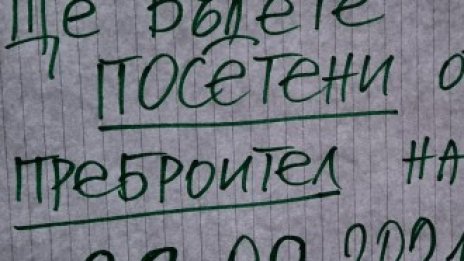 ще бъдете
ПОСЕТЕНИ о
ПРЕБРОИТЕЛ НА